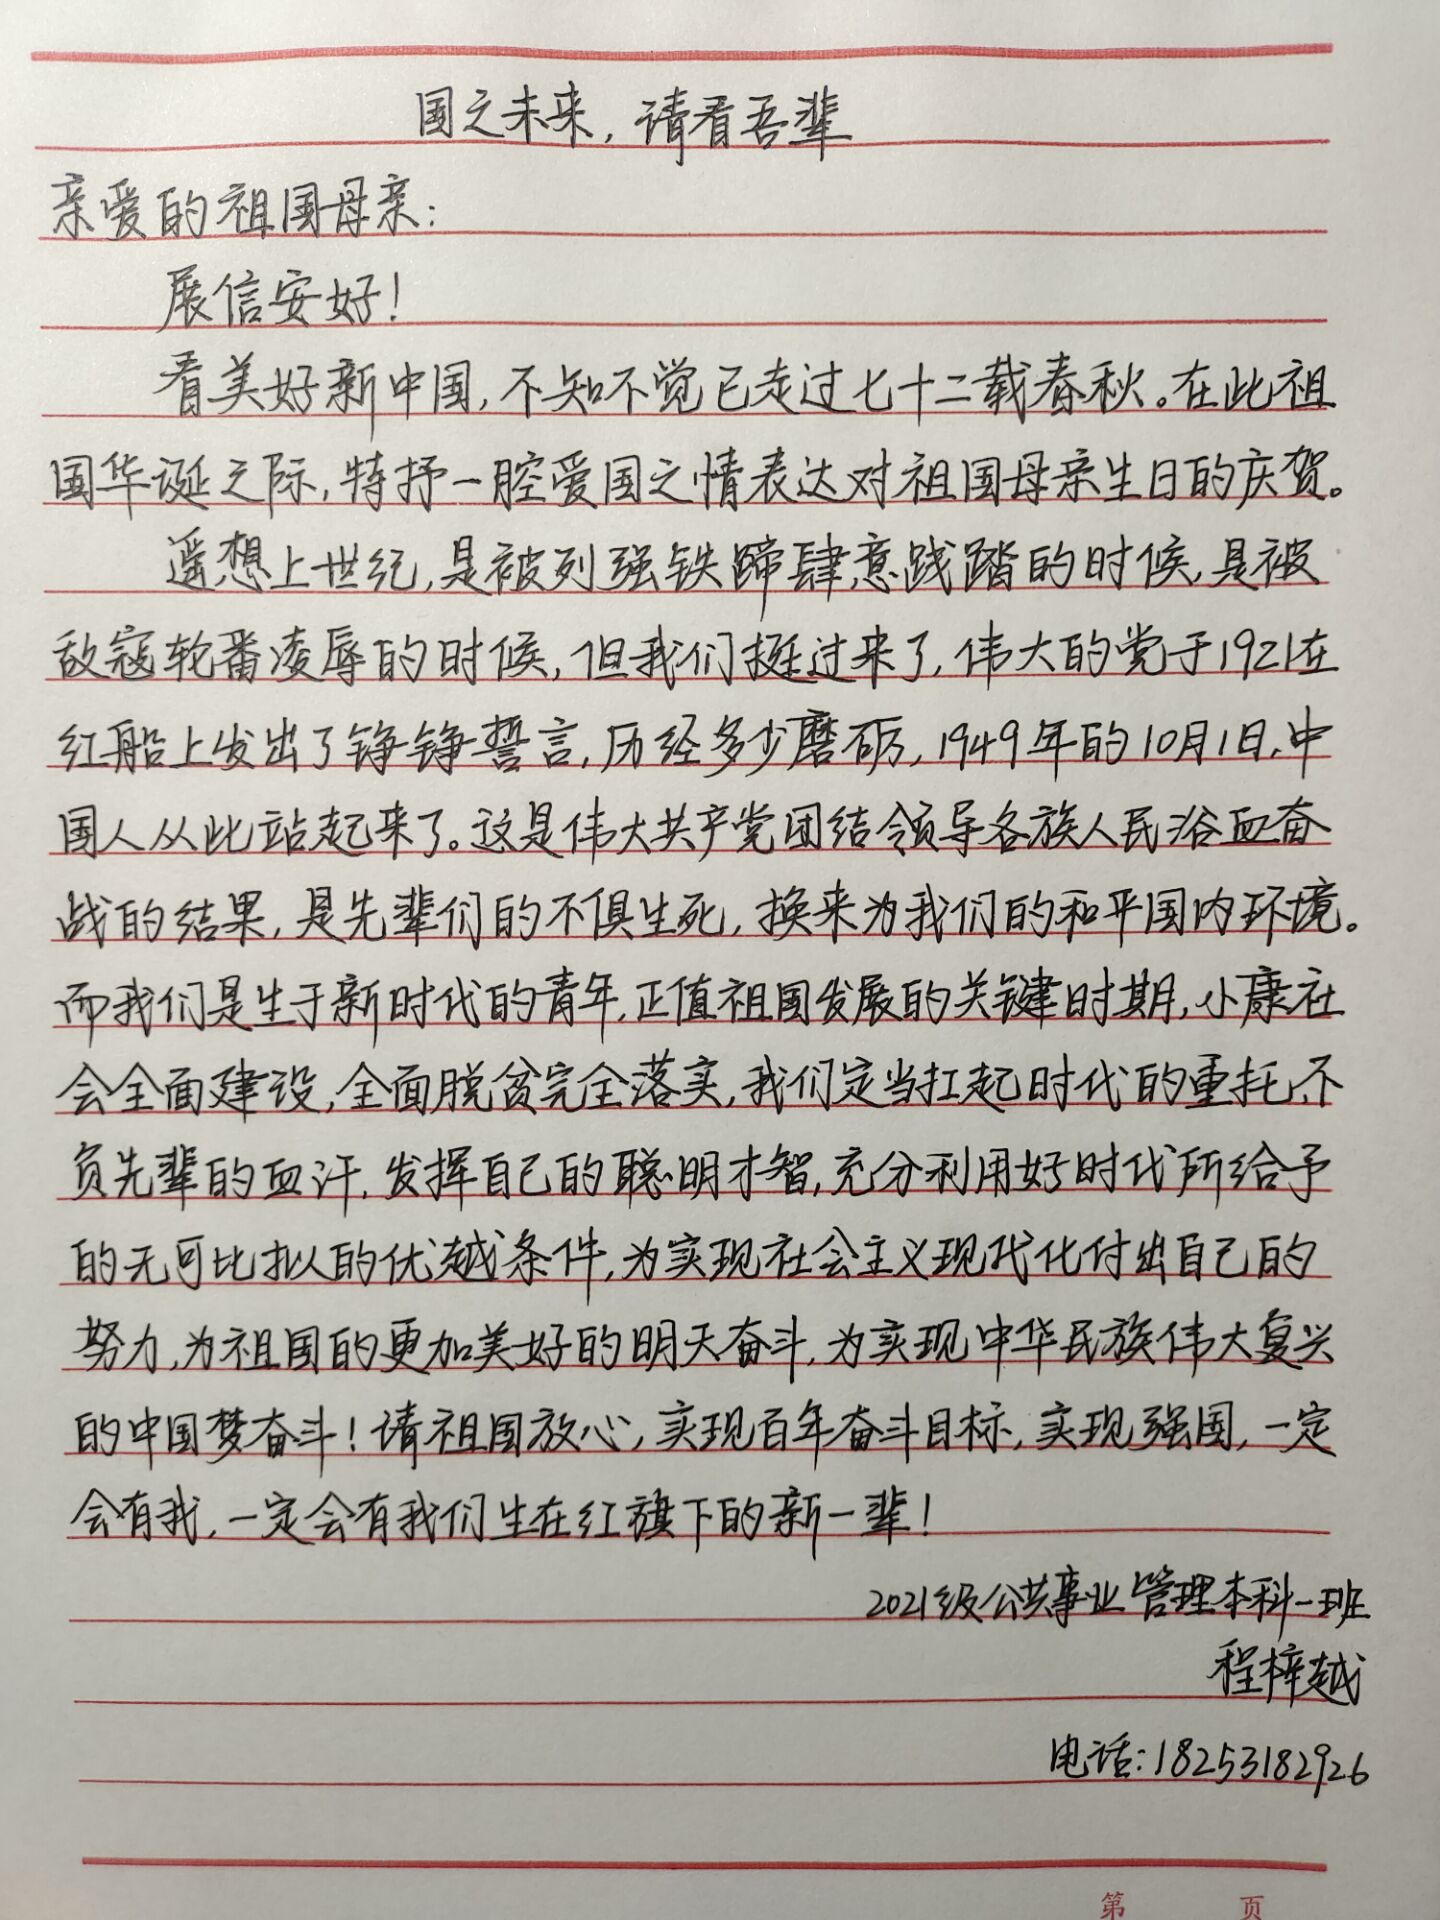 国之未来，请看吾辈
亲爱的祖国母亲：
展信安好！
看美好新中国，不知不觉已走过七十二载春秋。在此祖
国华诞之际，特抒一腔爱国之情表达对祖国母亲生日的庆贺。
遥想上世纪，是被列强铁蹄肆意践踏的时候，是被
敌寇轮番凌辱的时候，但我们挺过来了，伟大的党于1921在
红船上发出了铮铮誓言，历经多少磨砺，1949年的10月1日，中
国人从此站起来了。这是伟大共产党团结领导各族人民浴血奋
战的结果，是先辈们的不惧生死，换来为我们的和平国内环境。
而我们是生于新时代的青年，正值祖国发展的关键时期，小康社
会全面建设，全面脱贫完全落实，我们定当扛起时代的重托，不
负先辈的血汗，发挥自己的聪明才智，充分利用好时代所给予
的无可比拟的优越条件，为实现社会主义现代化付出自己的
努力，为祖国的更加美好的明天奋斗，为实现中华民族伟大复兴
的中国梦奋斗！请祖国放心，实现百年奋斗目标，实现强国，一定
会有我，一定会有我们生在红旗下的新一辈！
2021级公共事业管理本科一班
程梓越
电话：18253182926
第 页